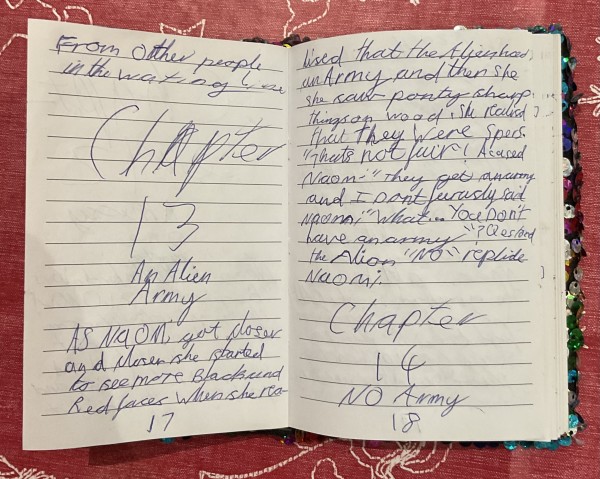 From Other people
in the wating line
Chapter
13
An Alien
Army
As Naomi got closer
and closer she started
to see more Black and
Red faces when she rea-
17
lised that the Aliens had
an Army and then she
she saw ponty sharp
things on wood, she realised
that they were spers
"Thats not fair! Acused
Naomi" They get an army
and I Dont feruosly said
Naomi "What... You Don't
have an army"? Qestond
the Alion "NO" replide
Naomi.
Chapter
14
NO Army
18